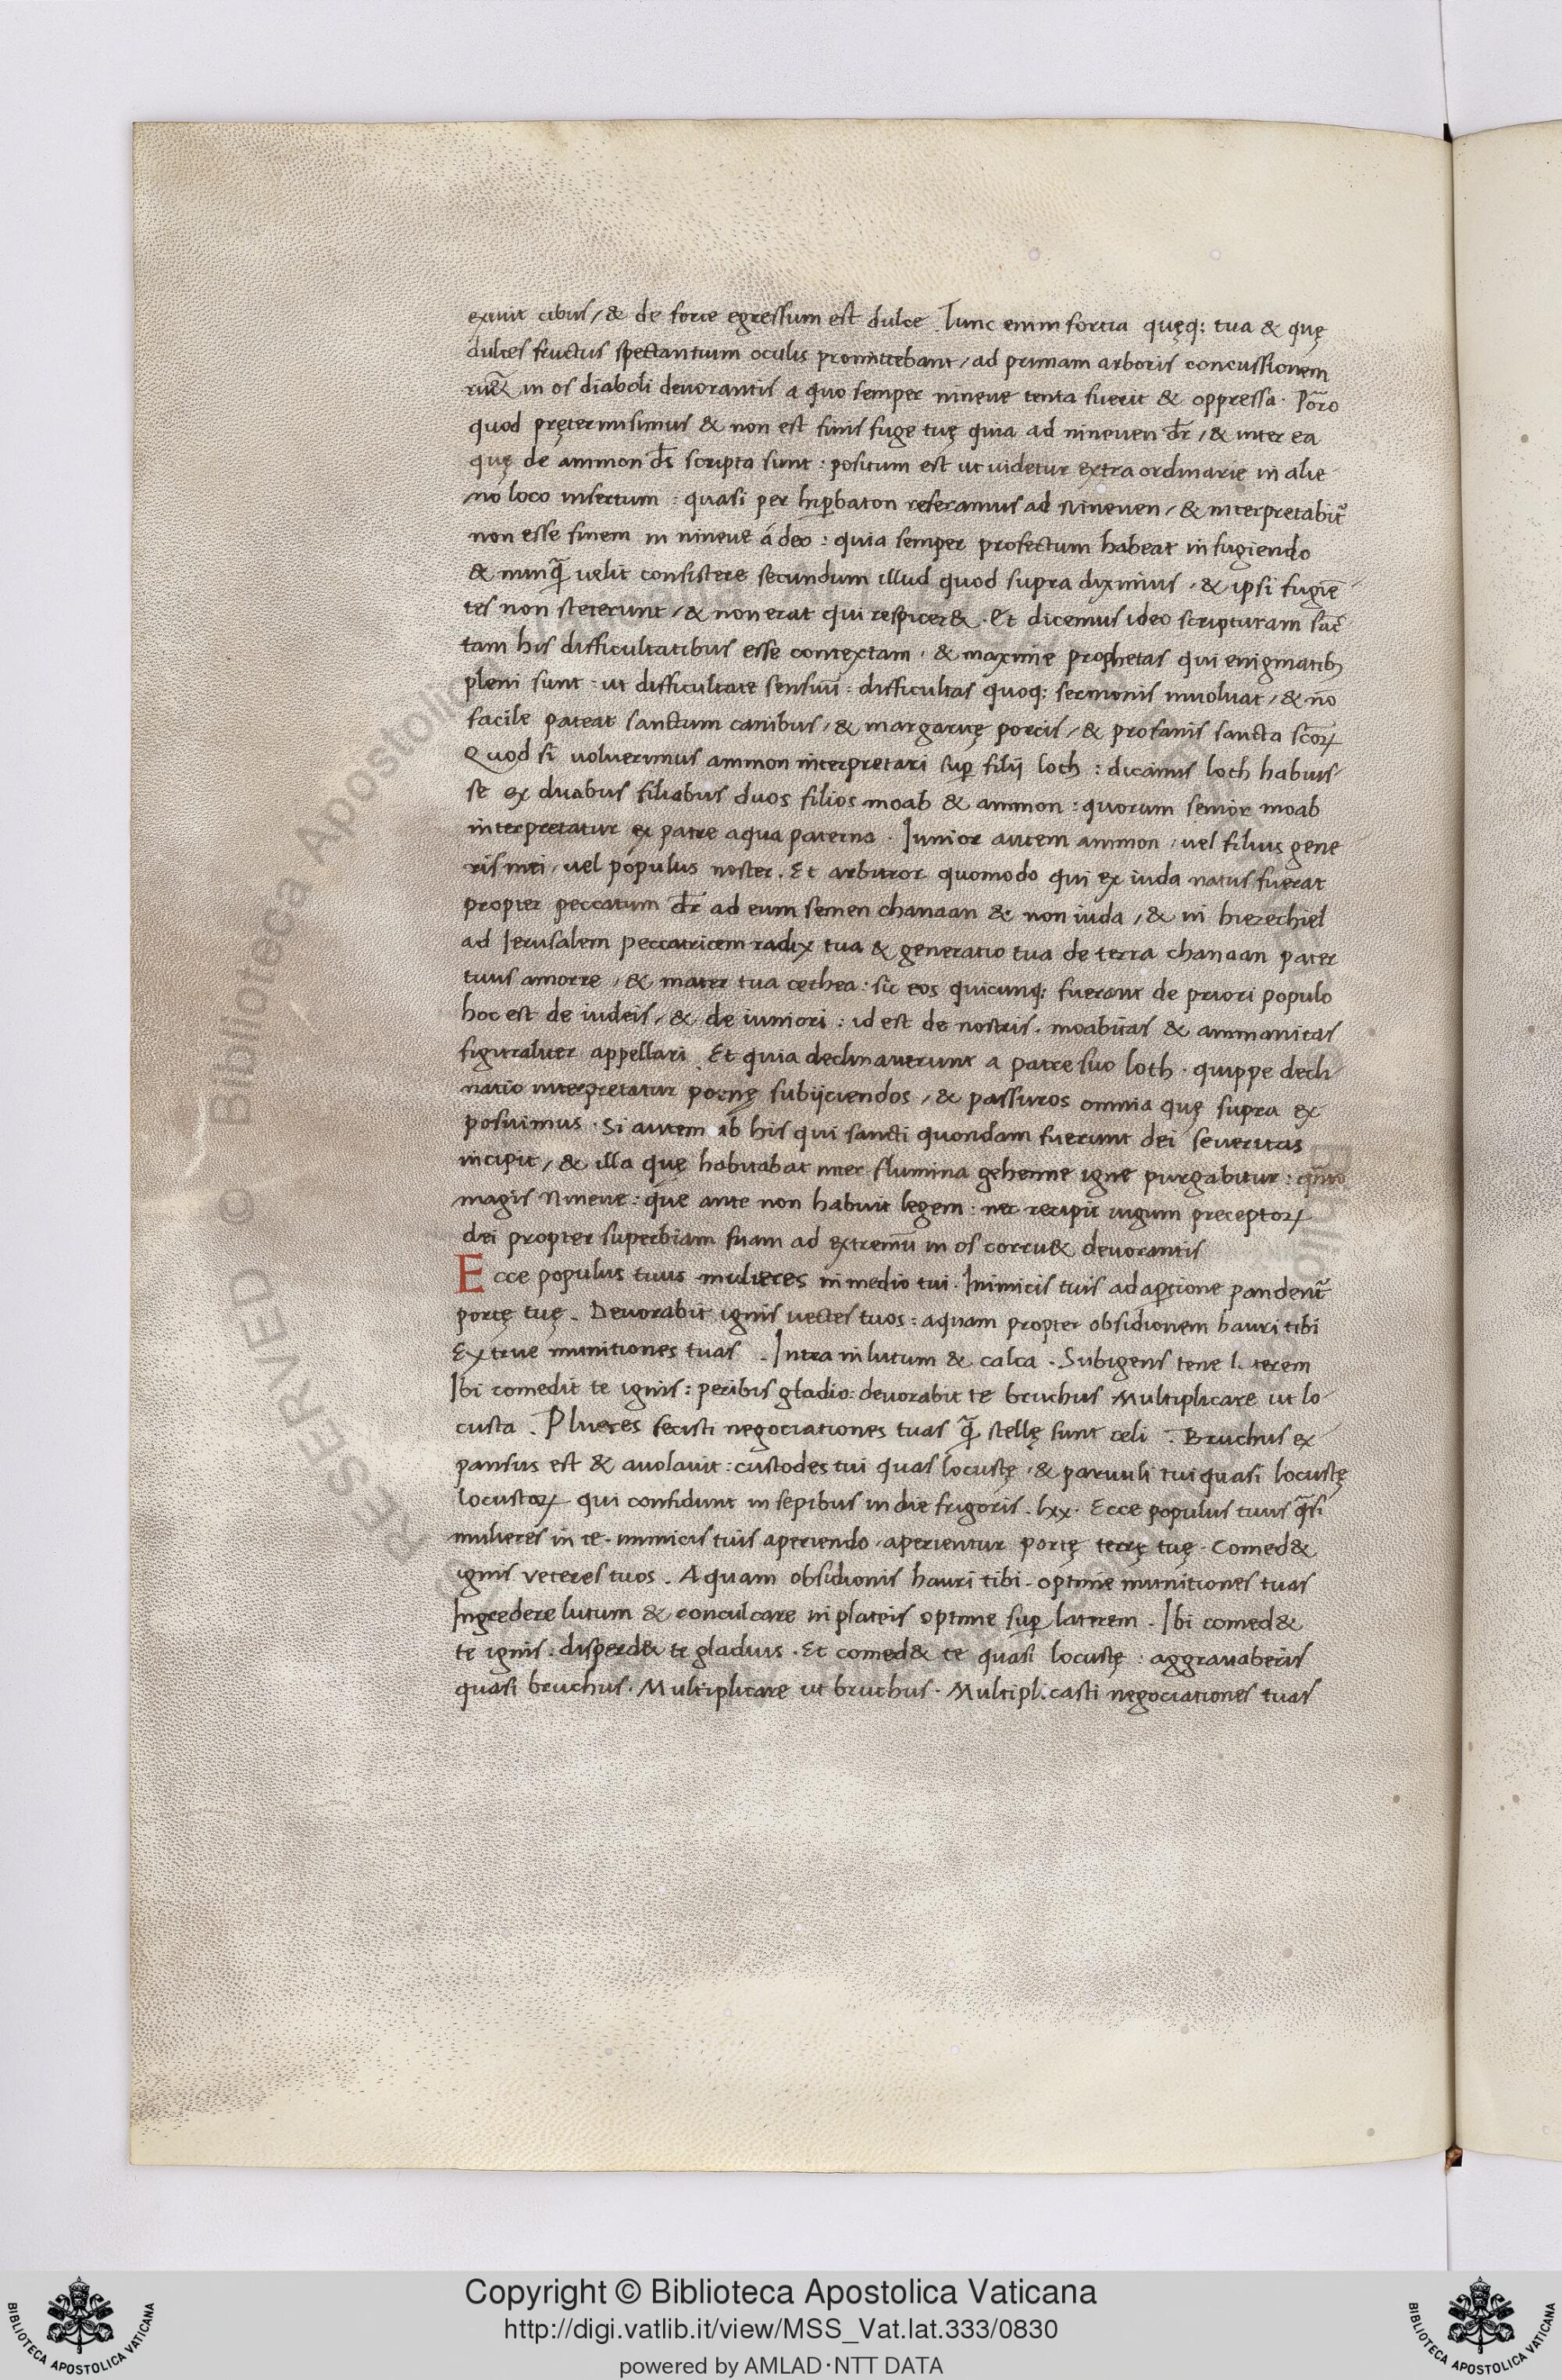 exiuit cibus / & de forte egressum est dulce . Tunc enim fortia quęq; tua & quę
dulces fructus spectantium oculis promittebant / ad primam arboris concussionem
ru&̃ in os diaboli deuorantis a quo semper nineue tenta fuerit & oppressa . Porͦro
quod pręter misimus & non est finis fuge tuę quia ad nineuen dr̄ / & inter ea
quę de ammon ds̄ scripta sunt : positum est ut uidetur extra ordinarie in alie
no loco insertum : quasi per hip̱baton referamus ad Nineuen / & interpretabit᷑
non esse finem in nineue á deo : quia semper profectum habeat in fugiendo
& nunq̄ uelit consistere secundum illud quod supra diximus . & ipsi fugiē
tes non steterunt / & non erat qui respicer& . Et dicemus ideo scripturam sāc
tam his difficultatibus esse contextam . & maxime prophetas qui enigmatibꝫ
pleni sunt . ut difficultate sensuū : difficultas quoq; sermonis inuoluat / & nō
facile pateat sanctum canibus / & margaritę porcis / & profanis sancta sc̄oꝝ
Quod si uoluerimus ammon interpretari sup̱ filij loth : dicamus loth habuis
se ex duabus filiabus duos filios moab & ammon : quorum senior moab
interpretatur ex patre aqua paterna . Iunior autem ammon . uel filius gene
ris mei . uel populus noster . Et arbitror quomodo qui ex iuda natus fuerat
propter peccatum dr̄ ad eum semen chanaan & non iuda / & in hiezechiel
ad Ierusalem peccatricem radix tua & generatio tua de terra chanaan pater
tuus amorre / & mater tua cethea : sic eos quicunq; fuerant de priori populo
hoc est de iudeis / & de iuniori : id est de nostris . moabitas & ammanitas
figuraliter appellari . Et quia declinauerunt a patre suo loth . quippe decli
natio interpretatur pocnę subijciendos / & passuros omnia quę supra ex
posuimus . Si autem ab his qui sancti quondam fuerunt dei seueritas
incipit / & illa quę habitabat inter flumina gehenne igne purgabitur : q̄nto
magis Nineue : que ante non habuit legem : nec recipit iugum preceptoꝝ
dei propter superbiam suam ad extremū in os corru& deuorantis
Ecce populus tuus mulieres in medio tui . Inimicis tuis adap̱tione pandent᷑
portę tuę . Deuorabit ignis uectes tuos : aquam propter obsidionem hauri tibi
Extrue munitiones tuas . Intra in lutum & calca . Subigens tene l terem
Ibi comedit te ignis : peribis gladio : deuorabit te bruchus Multiplicare ut lo
custa . Plueres fecisti negociationes tuas q̄ stellę sunt celi . Bruchus ex
pansus est & auolauit : custodes tui quas locustę . & paruuli tui quasi locustę
locustaꝝ qui considunt in sepibus in die frigoris . lxx . Ecce populus tuus q̄si
mulieres in te . inimicis tuis aperiendo . aperientur portę terrę tuę . Comed&
ignis veteres tuos . Aquam obsidionis hauri tibi . optine munitiones tuas
Ingredere lutum & conculcare in plateis optine sup̱ laterem . Ibi comed&
te ignis : disperd& te gladius . Et comed& te quasi locustę : aggrauaberis
quasi bruchus . Multiplicare ut bruchus . Multiplicasti negociationes tuas
© Biblioteca Apostolica Vaticana
RESERVED
Copyright © Biblioteca Apostolica Vaticana
http://digi.vatlib.it/view/MSS_Vat.lat.333/0830
powered by AMLAD·NTT DATA
BIBLIOTECA APOSTOLICA VATICANA
BIBLIOTECA APOSTOLICA VATICANA